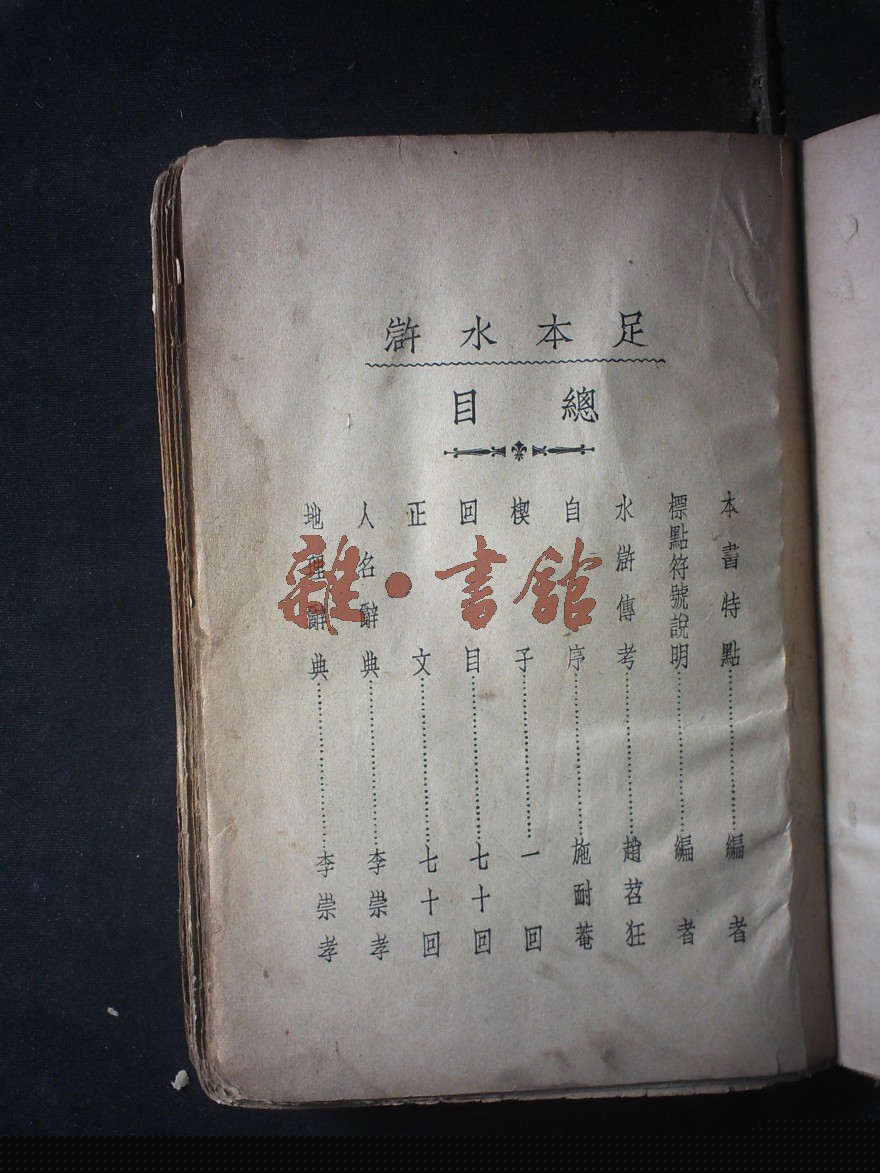 足本水滸
總目
本書特點…………………編者
標點符號說明…………………編者
水滸傳考…………………趙苕狂
自序…………………施耐菴
楔子…………………一回
回目…………………七十回
正文…………………七十回
人名辭典…………………李崇孝
地理辭典…………………李崇孝
雜·書館